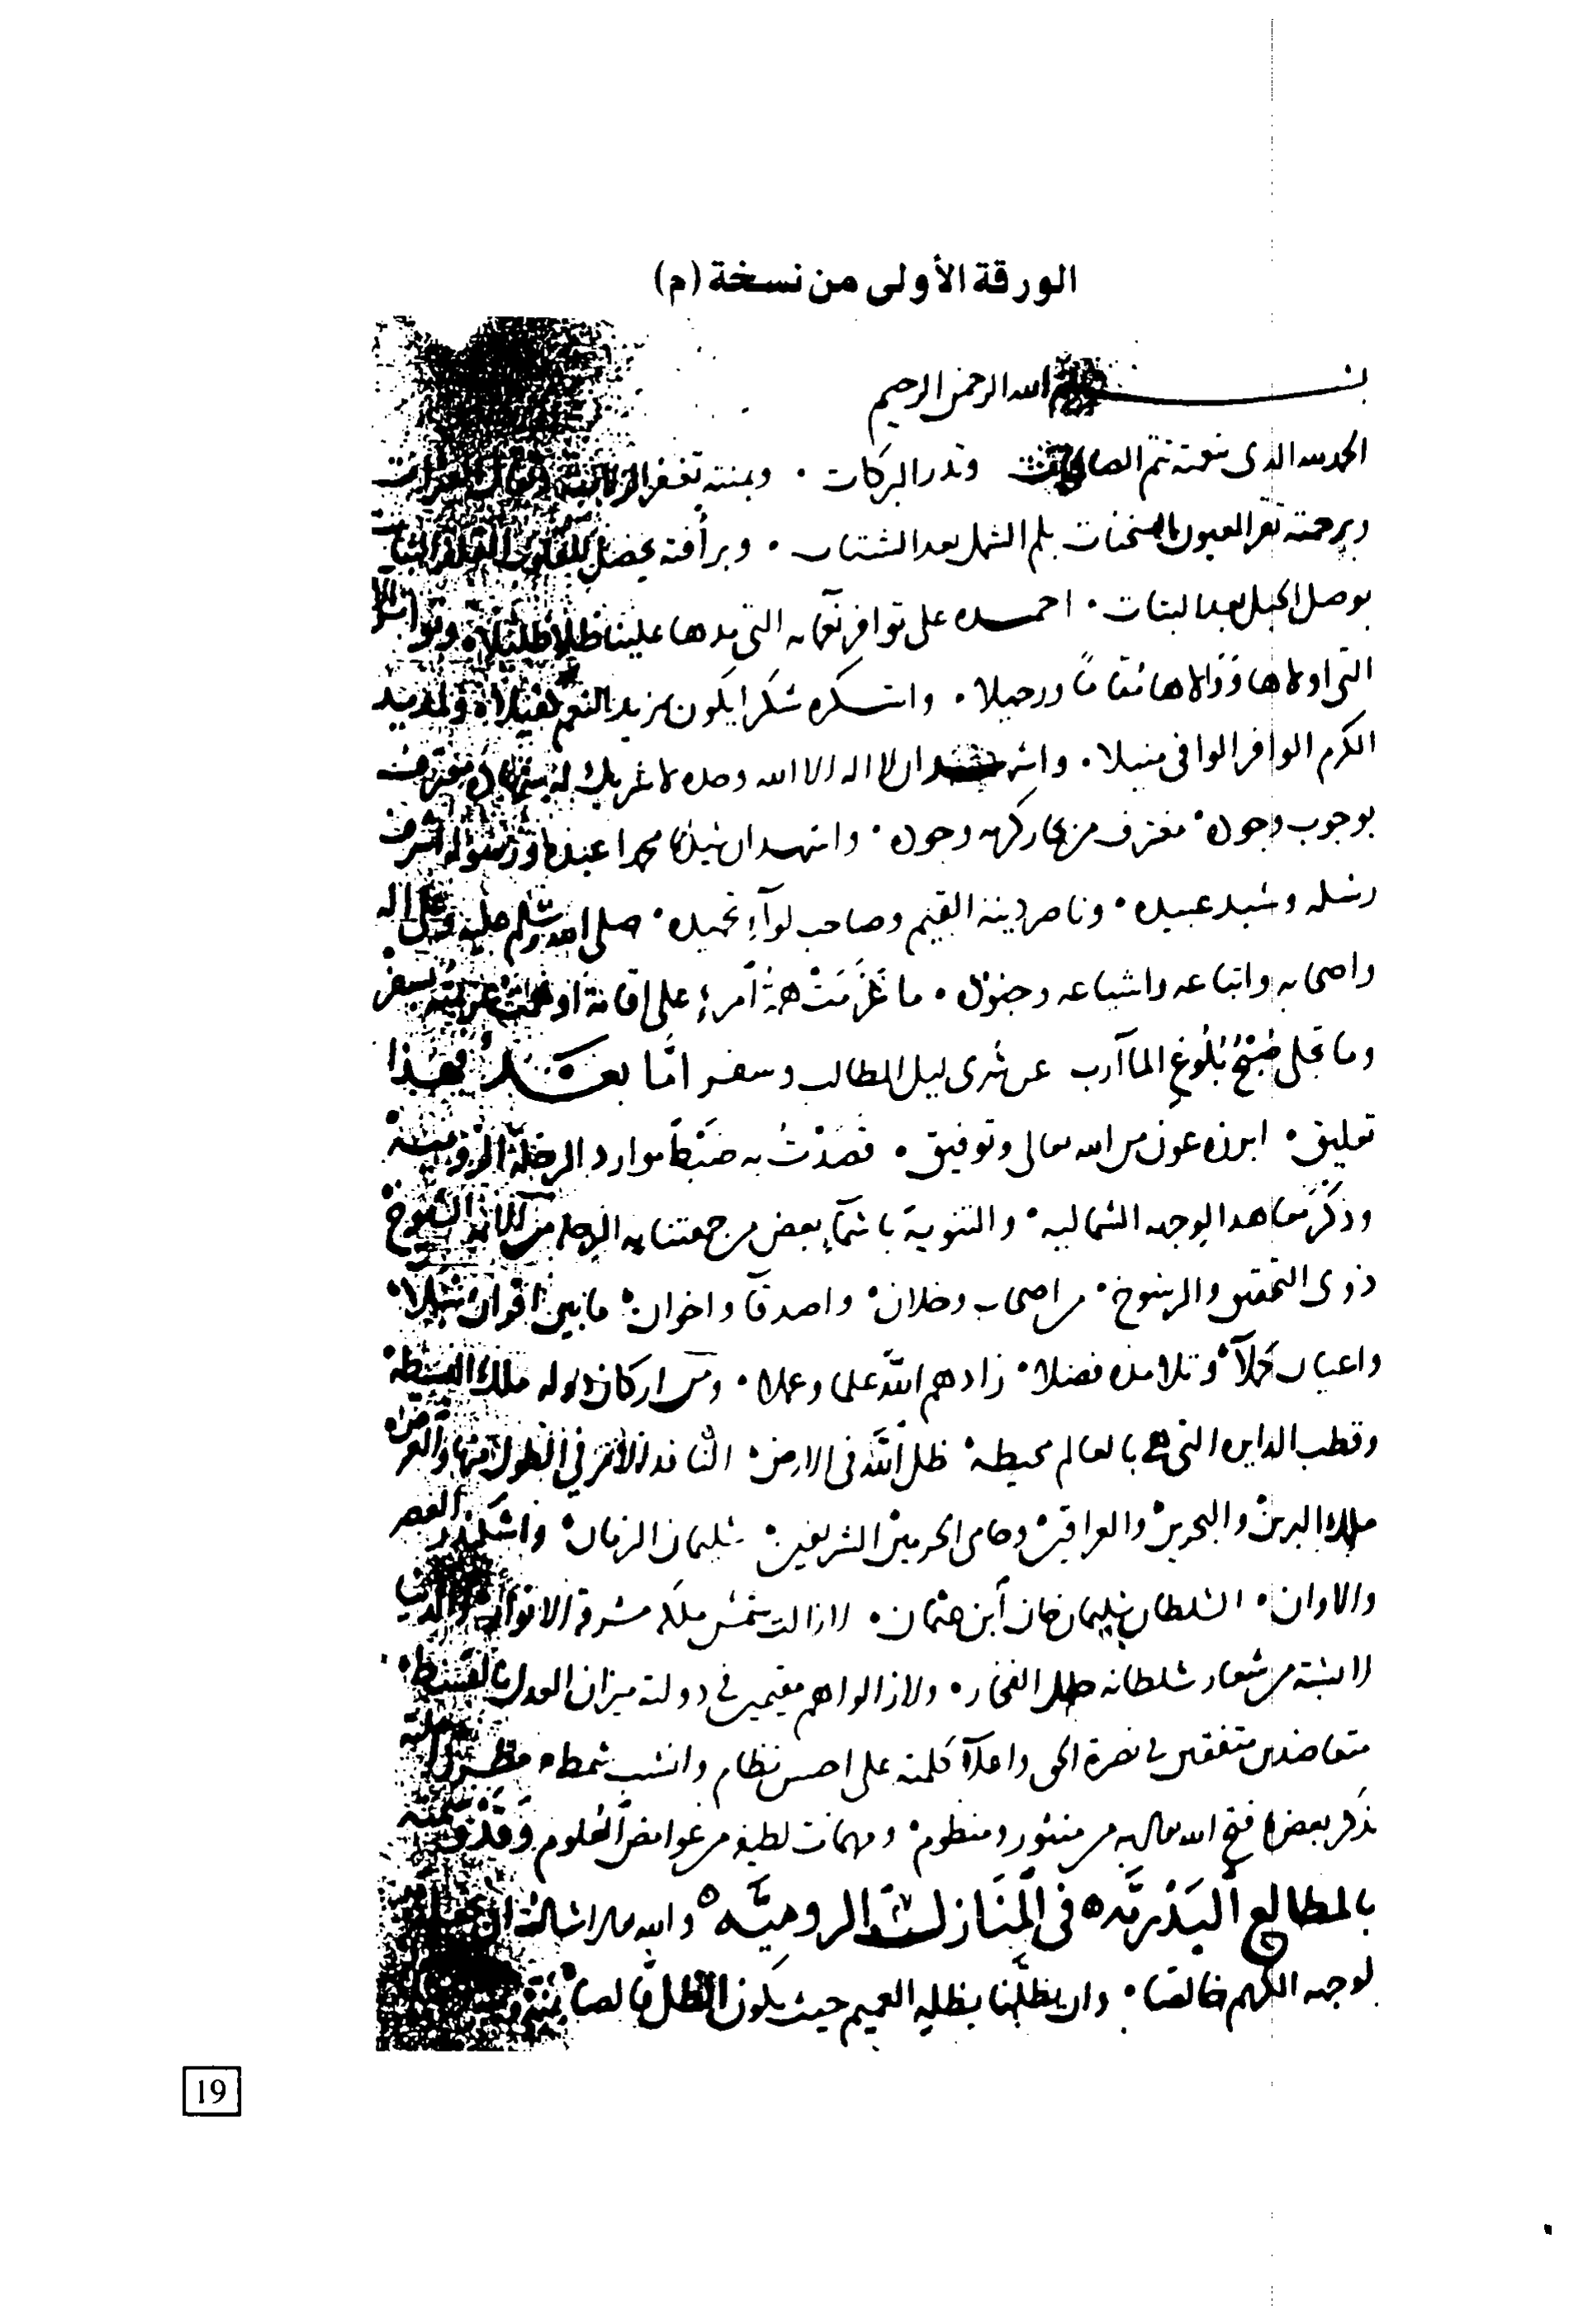 الورقة الأولى من نسخة (م)
بسم الله الرحمن الرحيم
الحمد لله الذى بنعمته تتم الصالحات وتدر البركات . وبمنته تغفر
وبرحمته تقر العيون بلم الشمل بعد الشتات . وبرأفته يحصل للقلوب
بوصل الحبل بعد البتات . احمده على توافر نعمايه التى مدها علينا ظلا ظليلا .
التى اولاها ووالاها مقاما ورحيلا . واشكره شكرا يكون بمزيد النعم كفيلا .
الكرم الوافر الوافى منيلا . واشهد ان لا اله الا الله وحده لا شريك له
بوجوب وجوده . مغترف من بحار كرمه وجوده . واشهد ان سيدنا محمدا عبده ورسوله اشرف
رسله وسيد عبيده . وناصر دينه القيم وصاحب لوآء تحميده . صلى الله وسلم عليه وعلى اله
واصحابه واتباعه واشياعه وجنوده . ما عزمت همة امرء على اقامة او سفر
وما تجلى صبح بلوغ المآرب عن سرى ليل المطالب وسفر اما بعد فهذا
تعليق . ابرزه عون من الله تعالى وتوفيق . قصدت به ضبط موارد الرحلة الرومية
وذكر معاهد الوجهه الشماليه . والتنويه باسمآء بعض من جمعتنا به الرحله من الشيوخ
ذوى التحقيق والرسوخ . من اصحاب وخلان . واصدقآ واخوان . مابين اقران نبلا .
واعيان كملآ . وتلامذه فضلا . زادهم الله علما وعملا . ومن اركان دولة ملك البسيطة
وقطب الدايره التى هى بالعالم محيطه . ظل الله فى الارض . النافذ الامر فى الطول منها والعرض
ملك البرين والبحرين والعراقين . وحامى الحرمين الشريفين . سليمان الزمان . واسكندر العصر
والاوان . السلطان سليمان خان ابن عثمان . لا زالت شمس ملكه مشرقة الانوار
لابسة من شعار سلطانه حلل الفخار . ولا زالوا هم مقيمين فى دولته ميزان العدل بالقسط .
متعاضدين متفقين فى نصرة الحق واعلآ كلمته على احسن نظام وانسب نمط .
بذكر بعض ما فتح الله تعالى به من منثور ومنظوم . ومهمات لطيفه من غوامض العلوم وقد وسمته
بالمطالع البدرية . فى المنازل الرومية . والله تعالى اسال ان
لوجهه الكريم خالصا . وان يظلنا بظله العميم حيث يكون الظل قالصا
19